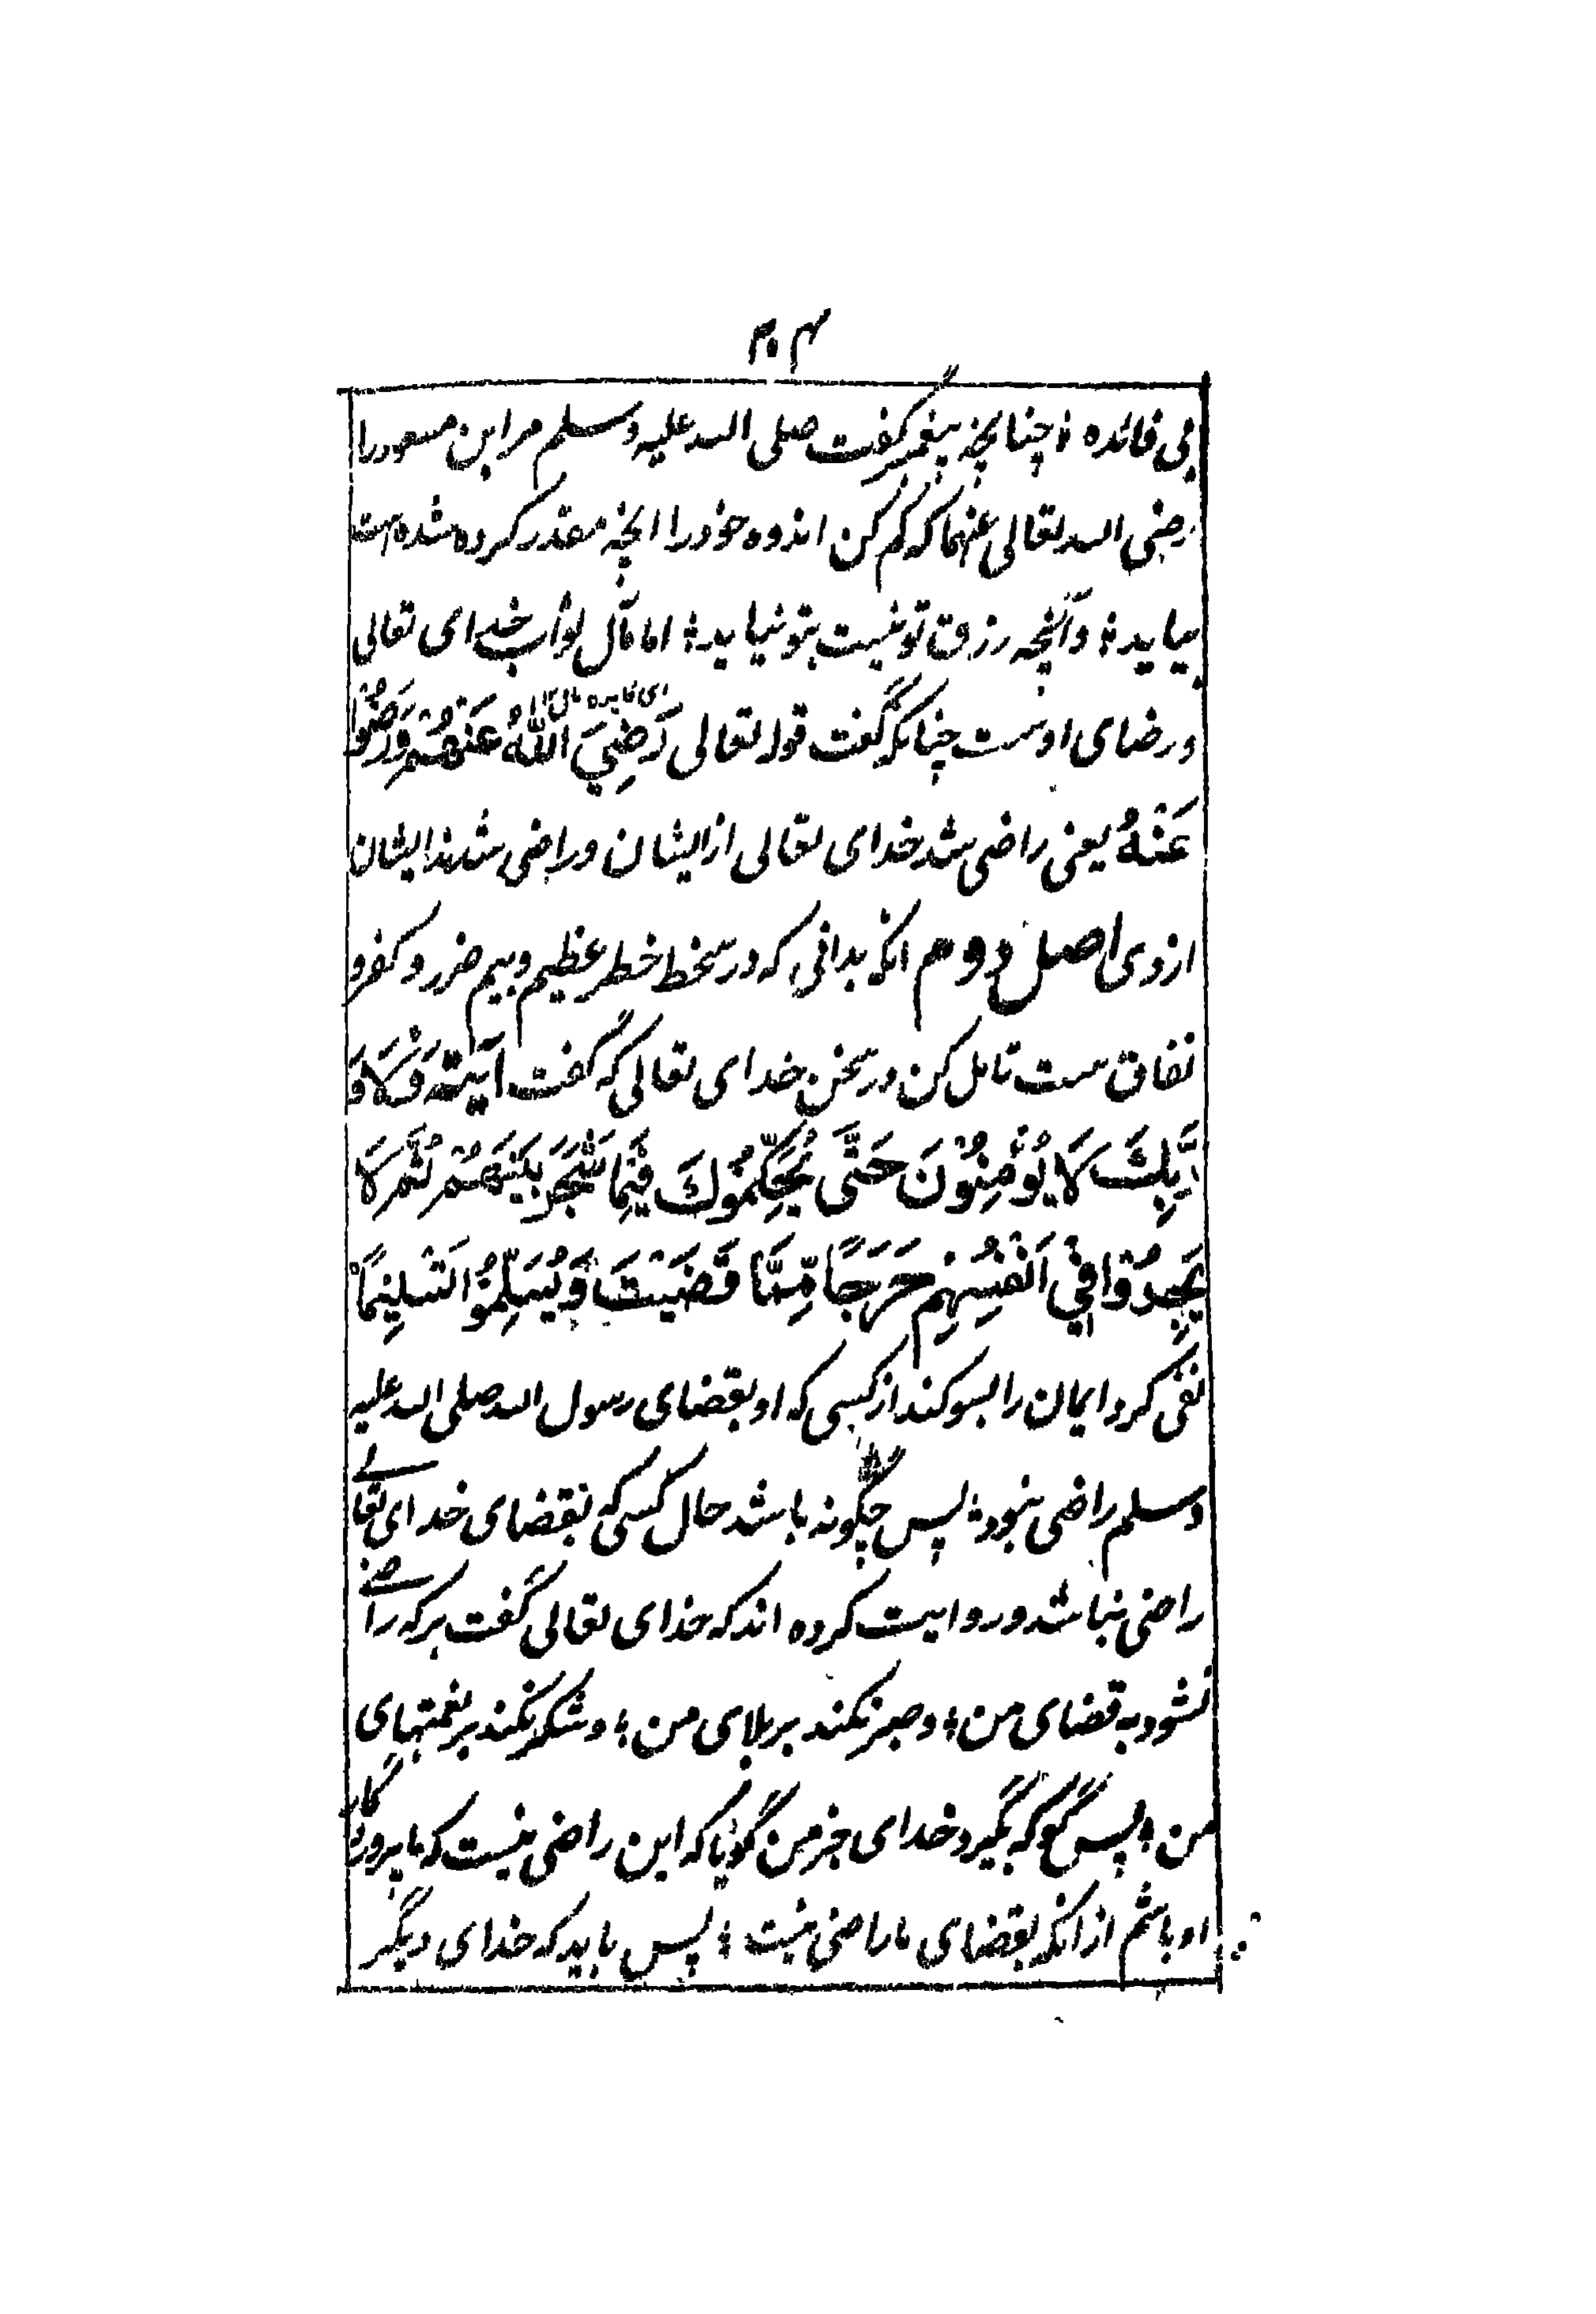 ۳۰۴
بی فائده ؛ چنانچه پیغمبر گفت صلی الله علیه وسلم مر ابن مسعود را
رضی الله تعالی عنهما که کم کن اندوه خود را انچه مقدر کرده شده است
بیاید ؛ و آنچه رزق تو نیست بتو نیاید ؛ اما مآل ثواب خدای تعالی
و رضای اوست چنانکه گفت قوله تعالی رَضِيَ اللّٰهُ عَنْهُمْ وَرَضُوْا
عَنْهُ یعنی راضی شد خدای تعالی از ایشان و راضی شدند ایشان
از وی اصل دوم انکه بدانی که در سخط خطر عظیم و بیم ضرر و کفر و
نفاق ست تامل کن در سخن خدای تعالی که گفت آیته فَلَا وَ
رَبِّكَ لَا يُؤْمِنُوْنَ حَتّٰى يُحَكِّمُوْكَ فِيْمَا شَجَرَ بَيْنَهُمْ ثُمَّ لَا
يَجِدُوْا فِيْ اَنْفُسِهِمْ حَرَجًا مِّمَّا قَضَيْتَ وَيُسَلِّمُوْا تَسْلِيْمًا
نفی کرد ایمان را بسوکند از کسی که او بقضای رسول الله صلی الله علیه
وسلم راضی نبود ؛ پس چگونه باشد حال کسی که بقضای خدای تعالے
راضی نباشد و روایت کرده اند که خدای تعالی گفت هرکه راضے
نشود به قضای من ؛ و صبر نکند بر بلای من ؛ و شکر نکند بر نعمتهای
من ؛ پس گو که بگیرد خدای جز من گویا که این راضی نیست که ما پروردگار
او باشم از انکه بقضای ما راضی نیست ؛ پس باید که خدای دیگر